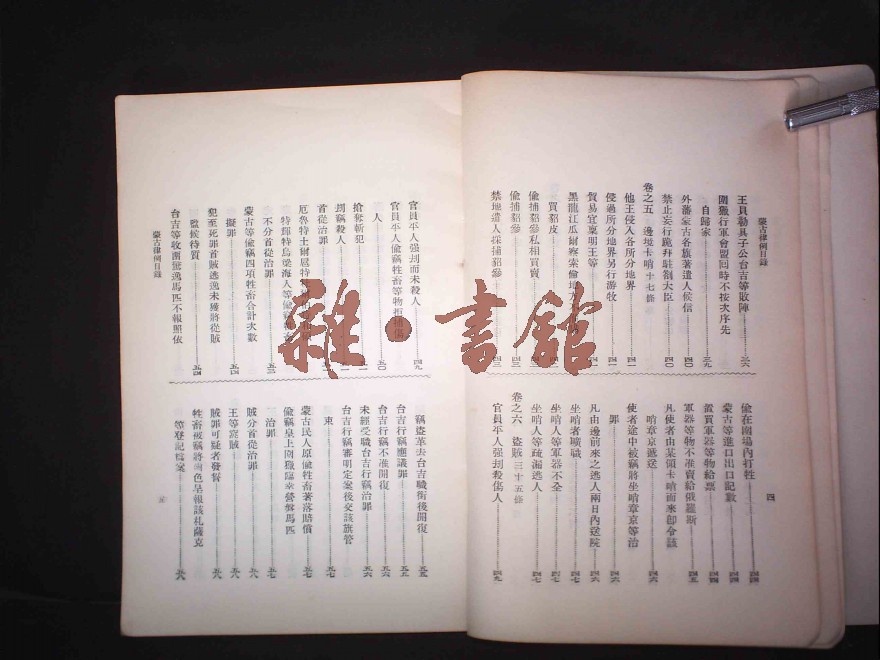 蒙古律例目錄
王貝勒貝子公台吉等敗陣……三六
圍獵行軍會盟同時不按次序先
自歸家……三九
外藩蒙古各旗著遣人候信……四〇
禁止妄行跪拜駐劄大臣……四〇
卷之五 邊境卡哨十七條
他王侵入各所分地界……四一
侵過所分地界另行游牧……四一
貿易宜稟明王等……四一
黑龍江瓜爾察索倫地方
買貂皮
偷捕貂參私相買賣
偷捕貂參……四三
禁地遣人採捕貂參……四三
偷在圍場內打牲……四四
蒙古等進口出口記數……四四
置買軍器等物給票……四四
軍器等物不准賣給俄羅斯……四五
凡使者由某領卡哨而來卽令該
哨章京遞送……四六
使者途中被竊將坐哨章京等治
罪……四六
凡由邊前來之逃人兩日內送院……四六
坐哨者曠職……四七
坐哨人等軍器不全……四七
坐哨人等疏漏逃人……四七
卷之六 盜賊三十五條
官員平人强刦殺傷人……四九
四
官員平人强刦而未殺人……四九
官員平人偷竊牲畜等物拒捕傷
人……五〇
搶奪斬犯
刦竊殺人
首從治罪
厄魯特土爾扈特
特輝特烏梁海人等偷竊牲畜
不分首從治罪
蒙古等偷竊四項牲畜合計次數
擬罪……五三
犯至死罪首賊逃逸未獲將從賊
監候待質……五四
台吉等收圍驚逸馬匹不報照依
蒙古律例目錄
竊盜革去台吉職銜後開復……五五
台吉行竊應議罪……五五
台吉行竊不准開復……五六
未經受職台吉行竊治罪……五六
台吉行竊審明定案後交該旗管
束……五七
蒙古民人原偷牲畜著落賠償……五七
偷竊皇上圍獵臨幸營盤馬匹
治罪……五七
賊分首從治罪……五八
王等窩賊……五八
賊罪可疑者發誓……五八
牲畜被竊將毛色呈報該札薩克
等登記檔案……五八
五
雜·書館